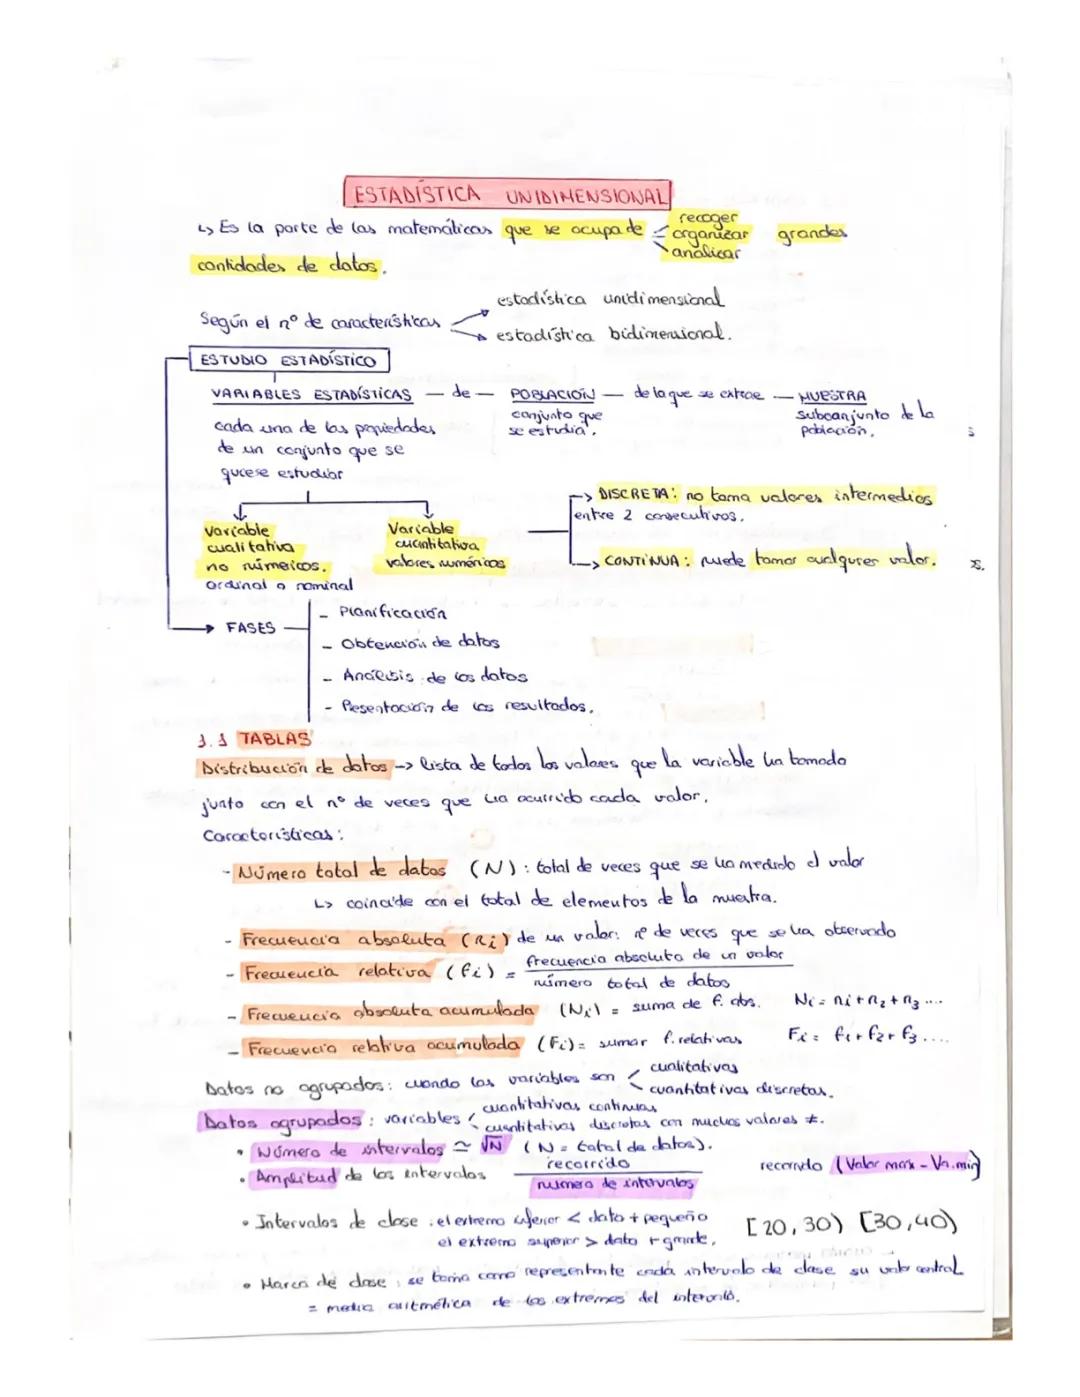 ESTADÍSTICA UNIDIMENSIONAL
↳ Es la parte de las matemáticas que se ocupa de recoger organizar analizar grandes
cantidades de datos.
Según el nº de características estadística unidimensional
estadística bidimensional.
ESTUDIO ESTADÍSTICO
VARIABLES ESTADÍSTICAS — de — POBLACIÓN — de la que se extrae — MUESTRA
cada una de las propiedades de un conjunto que se quiere estudiar
conjunto que se estudia.
subconjunto de la población.
Variable cualitativa no númericos. ordinal o nominal
Variable cuantitativa valores numéricos
→ DISCRETA: no toma valores intermedios
entre 2 consecutivos.
→ CONTINUA: puede tomar cualquier valor.
→ FASES
- Planificación
- Obtención de datos
- Análisis de los datos
- Presentación de los resultados.
1.1 TABLAS
Distribución de datos → lista de todos los valores que la variable ha tomado
junto con el nº de veces que ha ocurrido cada valor.
Características:
- Número total de datos (N): total de veces que se ha medido el valor
↳ coincide con el total de elementos de la muestra.
- Frecuencia absoluta (ni) de un valor: nº de veces que se ha observado
- Frecuencia relativa (fi) = frecuencia absoluta de un valor
número total de datos
- Frecuencia absoluta acumulada (Ni) = suma de f. abs. Ni = ni + n2 + n3 ....
- Frecuencia relativa acumulada (Fi) = sumar f. relativas Fi = f1 + f2 + f3 ....
Datos no agrupados: cuando las variables son cualitativas
cuantitativas discretas.
Datos agrupados: variables cuantitativas continuas
cuantitativas discretas con muchos valores ≠.
• Número de intervalos ≃ √N (N = total de datos).
• Amplitud de los intervalos recorrido
número de intervalos
recorrido (Valor max - Va. min)
• Intervalos de clase: el extremo inferior < dato + pequeño
el extremo superior > dato + grande. [20,30) [30,40)
• Marca de clase: se toma como representante cada intervalo de clase su valor central
= media aritmética de los extremos del intervalo.